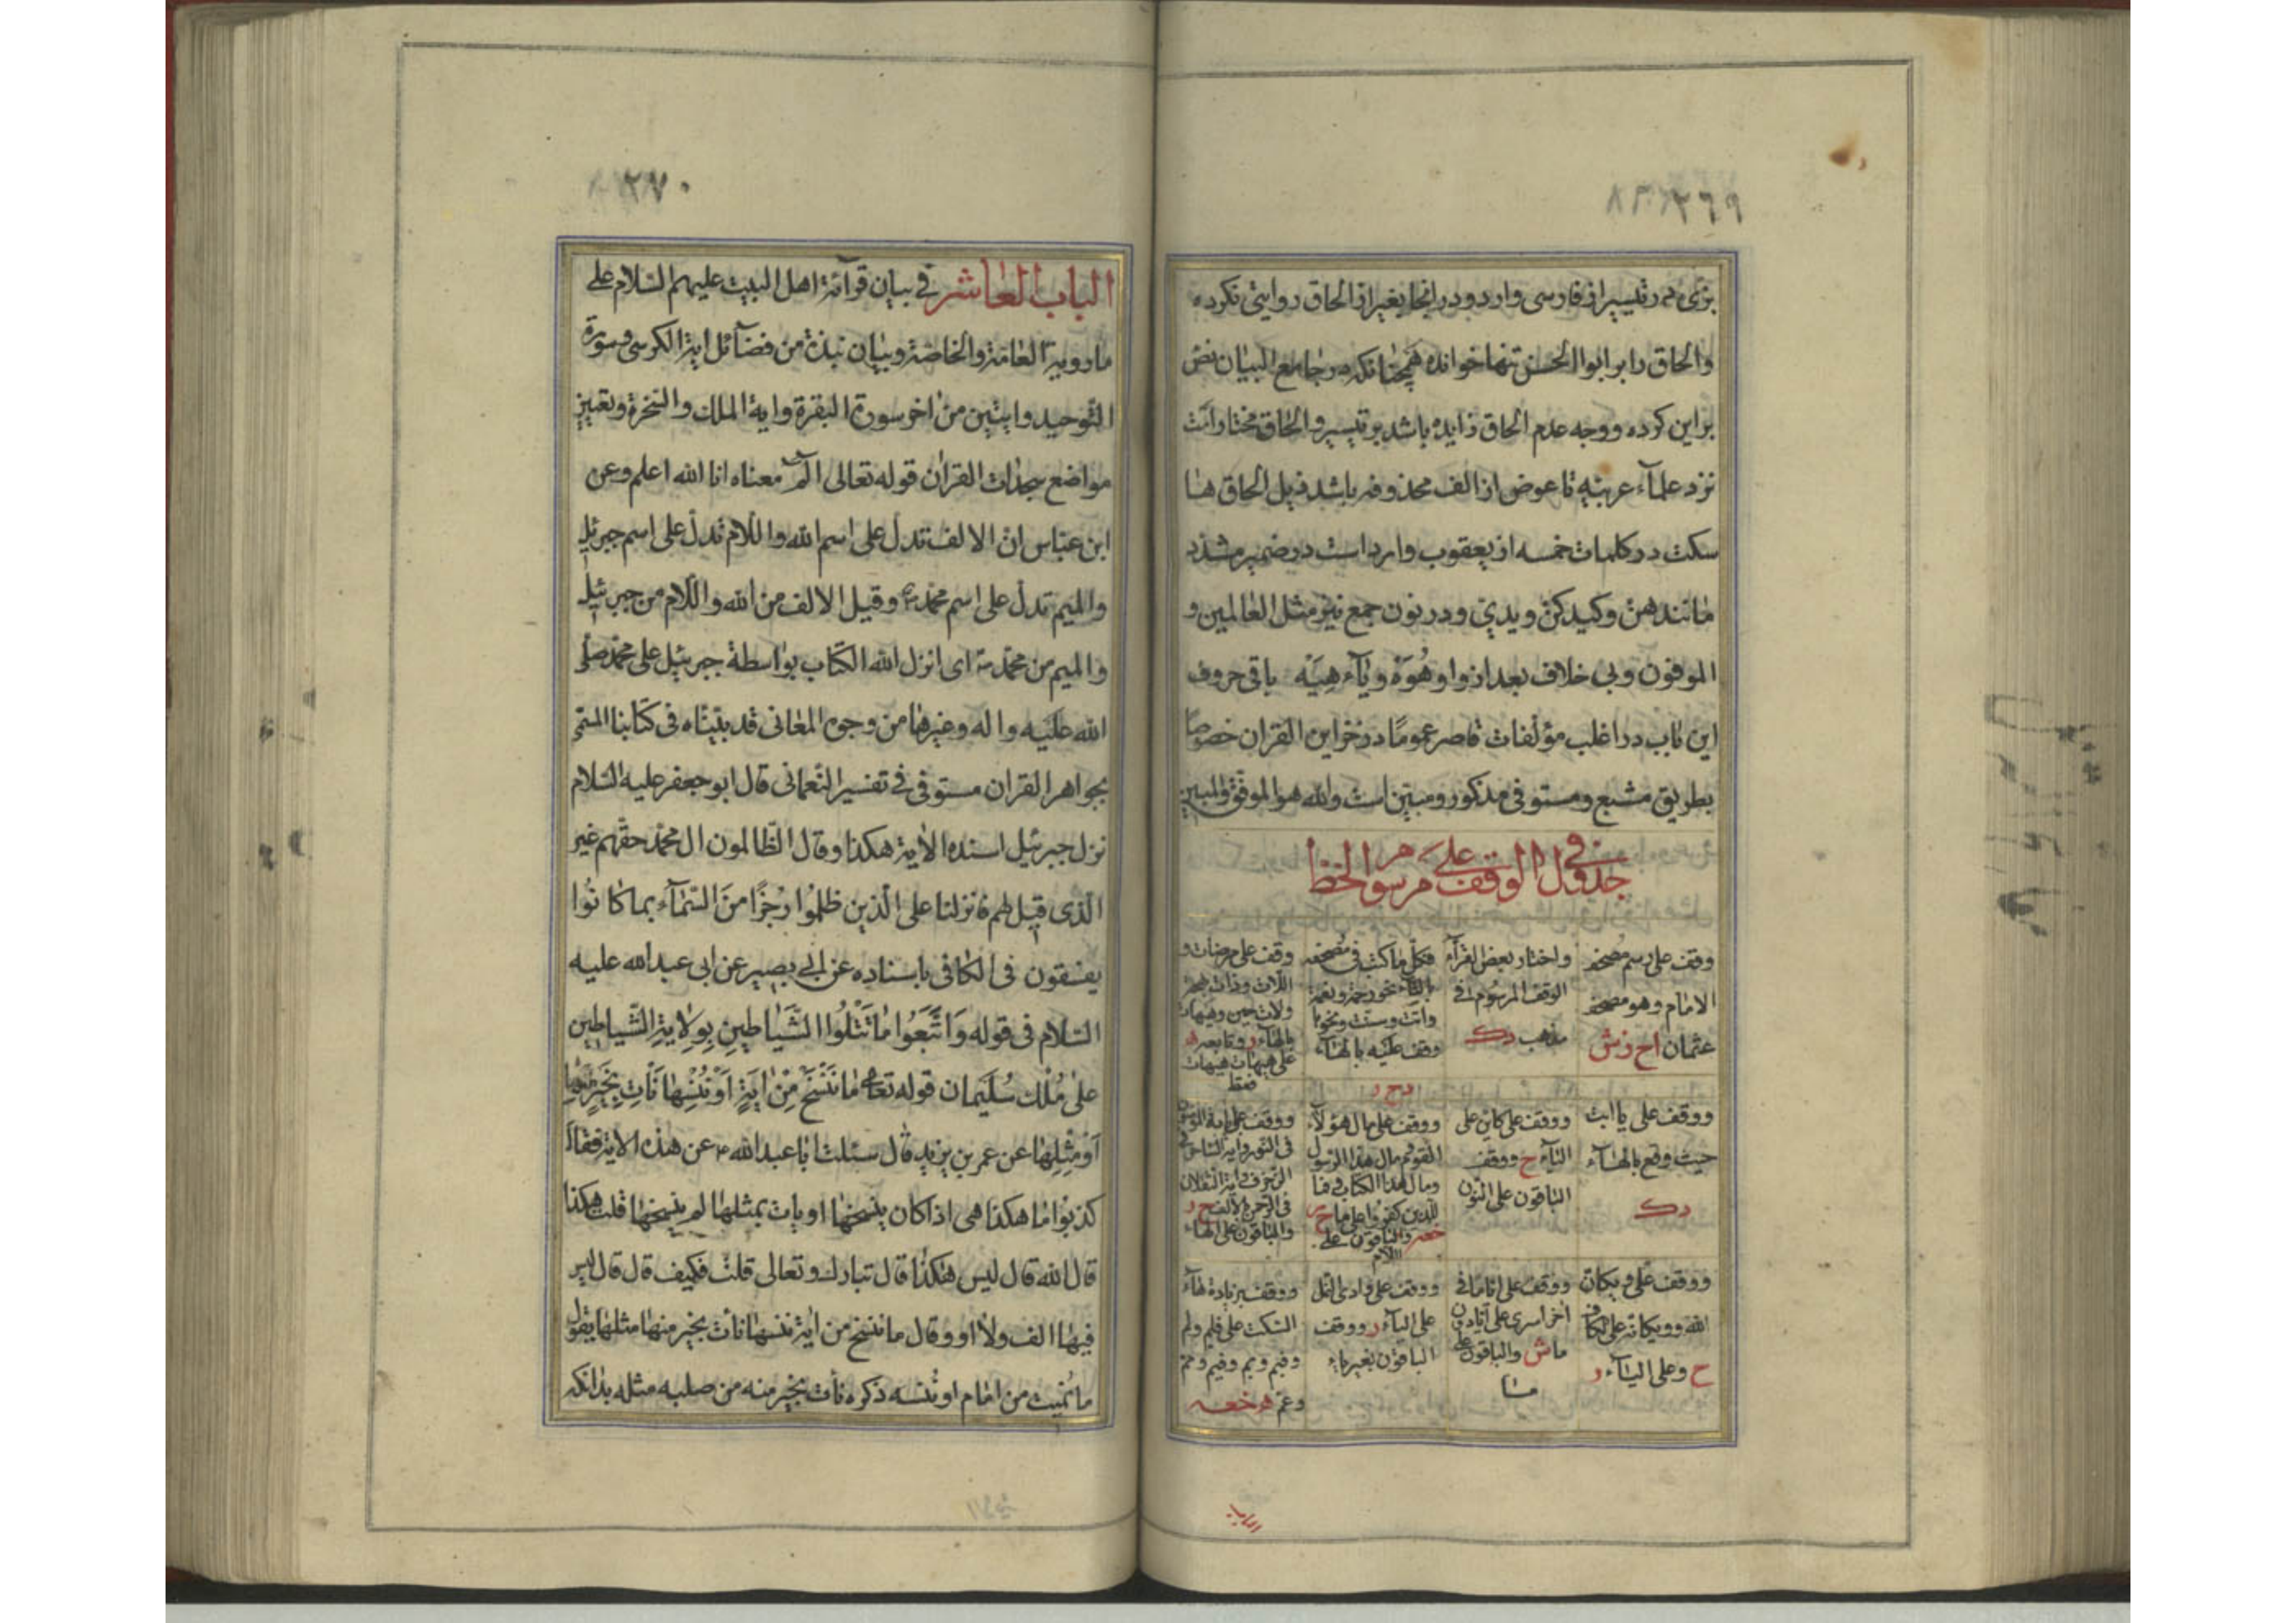 ٢٦٩
بزی در تیسیر از فارسی وارد و در انجا بغیر از الحاق روایتی نکرده
والحاق را بر ابو الحسن تنها خوانده همچنانکه در جامع البیان نص
بر این کرده و وجه عدم الحاق زایده باشد بر تیسیر و الحاق مختار است
نزد علمآء عربیه تا عوض از الف محذوفه باشد ذیل الحاق هاء
سکت در کلمات خمسه از یعقوب وارد است در ضمیر مشدد
مانند هن و کیدکن و یدی و در نون جمع نیز مثل العالمین و
الموفون و بی خلاف بعد از واو هُوَهْ و یآء هِیَهْ باقی حروف
این باب در اغلب مؤلفات قاصر عمومًا در خزاین القران خصوصًا
بطریق مشبع و مستوفی مذکور و مبین است والله هو الموفق والمبین
جدول الوقف علی مرسوم الخط
وقف علی رسم مصحف
الامام و هو مصحف
عثمان اح زش
واختار بعض القرآء
الوقف المرسوم فی
مذهب دک
فکل ما کتب فی مصحفه
بالتآء نحو رحمة و نعمة
وانت و سنت و نحوها
وقف علیه بالهآء
دح ر
ووقف علی مرضات و
اللات و ذات بهجة
ولات حین وهیهات
بالهآء ر و تابعه ه
علی هیهات هیهات
فقط
ووقف علی یا ابت
حیث وقع بالهآء
دک
ووقف علی کاین علی
الیآء ح ووقف
الباقون علی النون
ووقف علی مال هؤلآء
القوم مال هذا الرسول
ومال هذا الکتاب فما
للذین کفروا علی ما ح
والباقون علی
اللام
ووقف علی ایه المؤمنون
فی النور وایه الساحر فی
الزخرف وایه الثقلان
فی الرحمن بالالف ح ر
والباقون علی الهاء
ووقف علی ویکان
الله وویکانه علی الکاف
ح وعلی الیآء ر
ووقف علی ایاما فی
اخر اسری علی ایا دون
ما ش والباقون علی
ما
ووقف علی وادی النمل
علی الیآء ر ووقف
الباقون بغیر یاء
ووقف بزیادة هآء
السکت علی فلم ولم
وفیم وبم ومم
وعم
الباب
٢٧٠
الباب العاشر فی بیان قرآءة اهل البیت علیهم السلام علی
ما رویه العامة والخاصة وبیان نبذة من فضآئل ایة الکرسی وسورة
التوحید وایتین من اخر سورة البقرة وایة الملک والسخرة وتعیین
مواضع سجدات القران قوله تعالی الم معناه انا الله اعلم وعن
ابن عباس ان الالف تدل علی اسم الله واللام تدل علی اسم جبرئیل
والمیم تدل علی اسم محمد وقیل الالف من الله واللام من جبرئیل
والمیم من محمد ای انزل الله الکتاب بواسطة جبرئیل علی محمد صلی
الله علیه واله وغیرها من وجوه المعانی قد بیناه فی کتابنا المسمی
بجواهر القران مستوفی فی تفسیر النعمانی قال ابو جعفر علیه السلام
نزل جبرئیل اسنده الایة هکذا وقال الظالمون ال محمد حقهم غیر
الذی قیل لهم فانزلنا علی الذین ظلموا رجزًا من السمآء بما کانوا
یفسقون فی الکافی باسناده عن ابی بصیر عن ابی عبد الله علیه
السلام فی قوله وَاتَّبَعُوا مَا تَتْلُوا الشَّیَاطِینِ بِوِلَایَةِ الشَّیاطین
علی مُلْك سُلَیمان قوله تعالی مَا نَنْسَخْ مِنْ ایَةٍ اَوْ نُنْسِهَا نَأْتِ بِخَیرٍ مِنْها
اَوْ مِثْلِهَا عن عمر بن یزید قال سئلت ابا عبد الله ع عن هذه الایة فقال
کذبوا ما هکذا هی اذا کان ینسخها او یات بمثلها لم ینسخها قلت هکذا
قال الله قال لیس هکذا قال تبارك وتعالی قلت فکیف قال قال لیس
فیها الف ولا واو قال ما ننسخ من ایة ننسها نأت بخیر منها مثلها یقول
ما نمیت من امام او ننسه ذکره نأت بخیر منه من صلبه مثله بدانکه